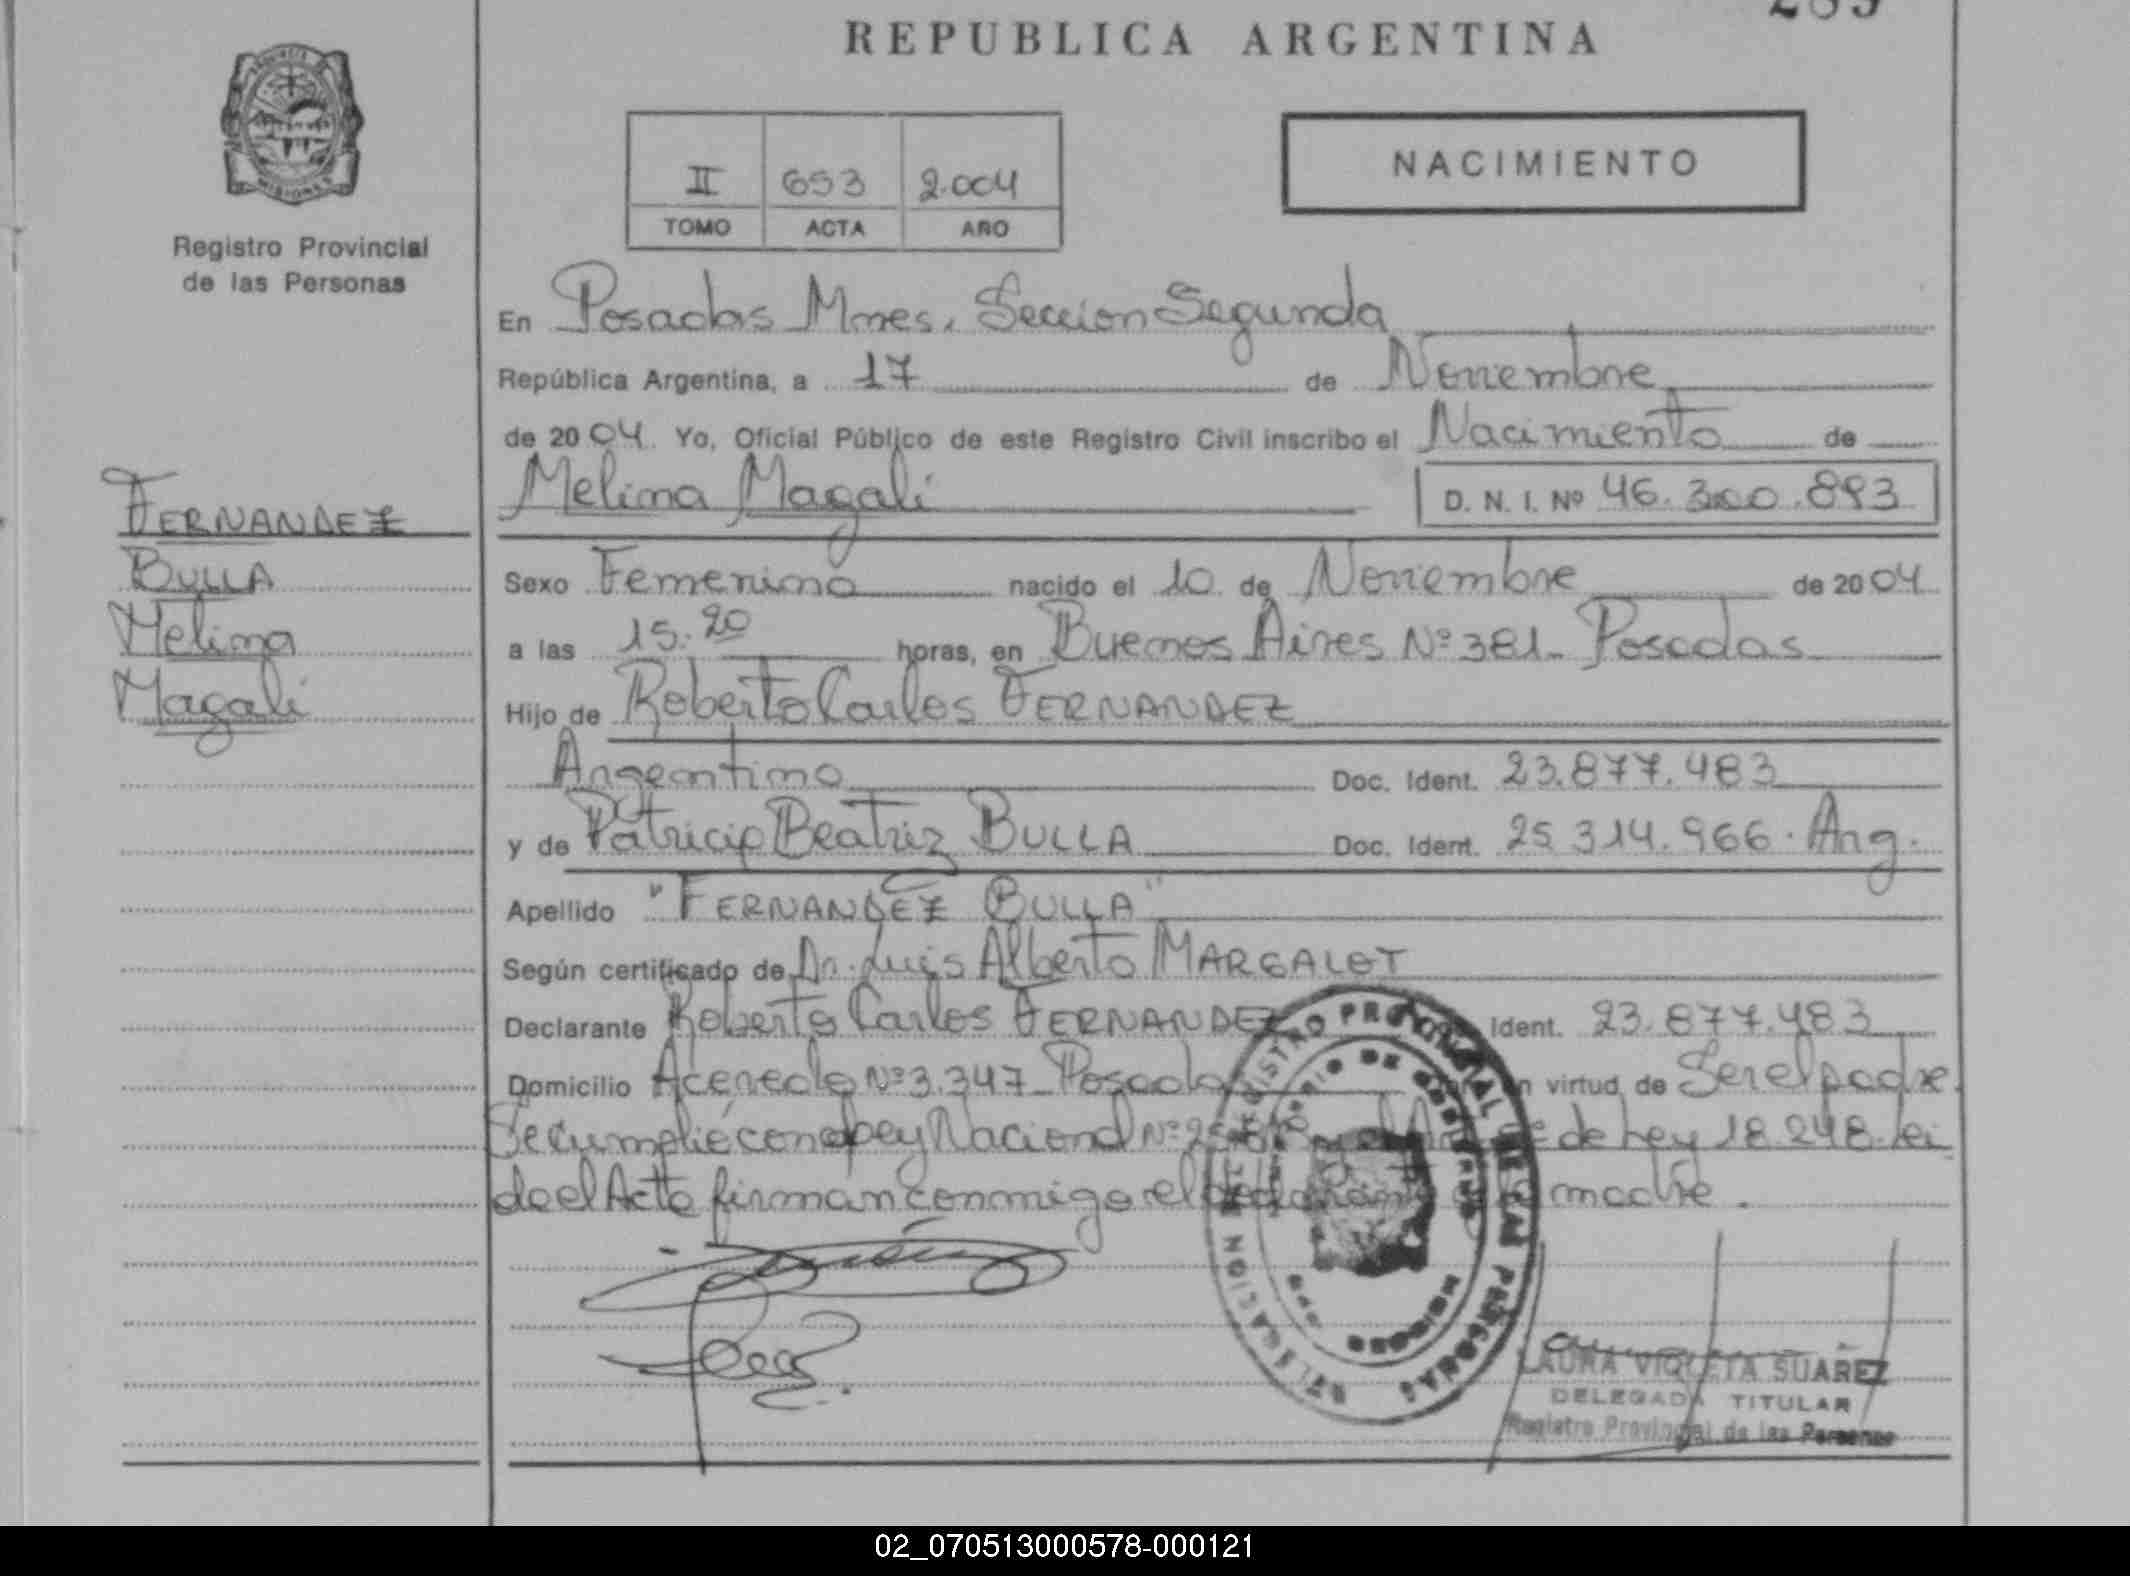 REPUBLICA ARGENTINA
PROVINCIA
MISIONES
Registro Provincial
de las Personas
II 653 2.004
TOMO ACTA AÑO
NACIMIENTO
En Posadas Mnes. Seccion Segunda
República Argentina, a 17 de Noviembre
de 2004. Yo, Oficial Público de este Registro Civil inscribo el Nacimiento de
Melina Magali D. N. I. Nº 46.300.893
FERNANDEZ
BULLA
Melina
Magali
Sexo Femenino nacido el 10 de Noviembre de 2004
a las 15.20 horas, en Buenos Aires Nº 381 - Posadas
Hijo de Roberto Carlos FERNANDEZ
Argentino Doc. Ident. 23.877.483
y de Patricia Beatriz BULLA Doc. Ident. 25.314.966. Arg.
Apellido "FERNANDEZ BULLA"
Según certificado de Dr. Luis Alberto MARGALOT
Declarante Roberto Carlos FERNANDEZ Ident. 23.877.483
Domicilio Nº 3.347 - Posadas virtud de Ser el padre.
Se cumplió con Ley Nacional Nº de Ley 18.248. Lei
do el Acta firman conmigo el declarante madre.
REGISTRO PROVINCIAL DE LAS PERSONAS
LAURA VIOLETA SUAREZ
DELEGADA TITULAR
Registro Provincial de las Personas
02_070513000578-000121